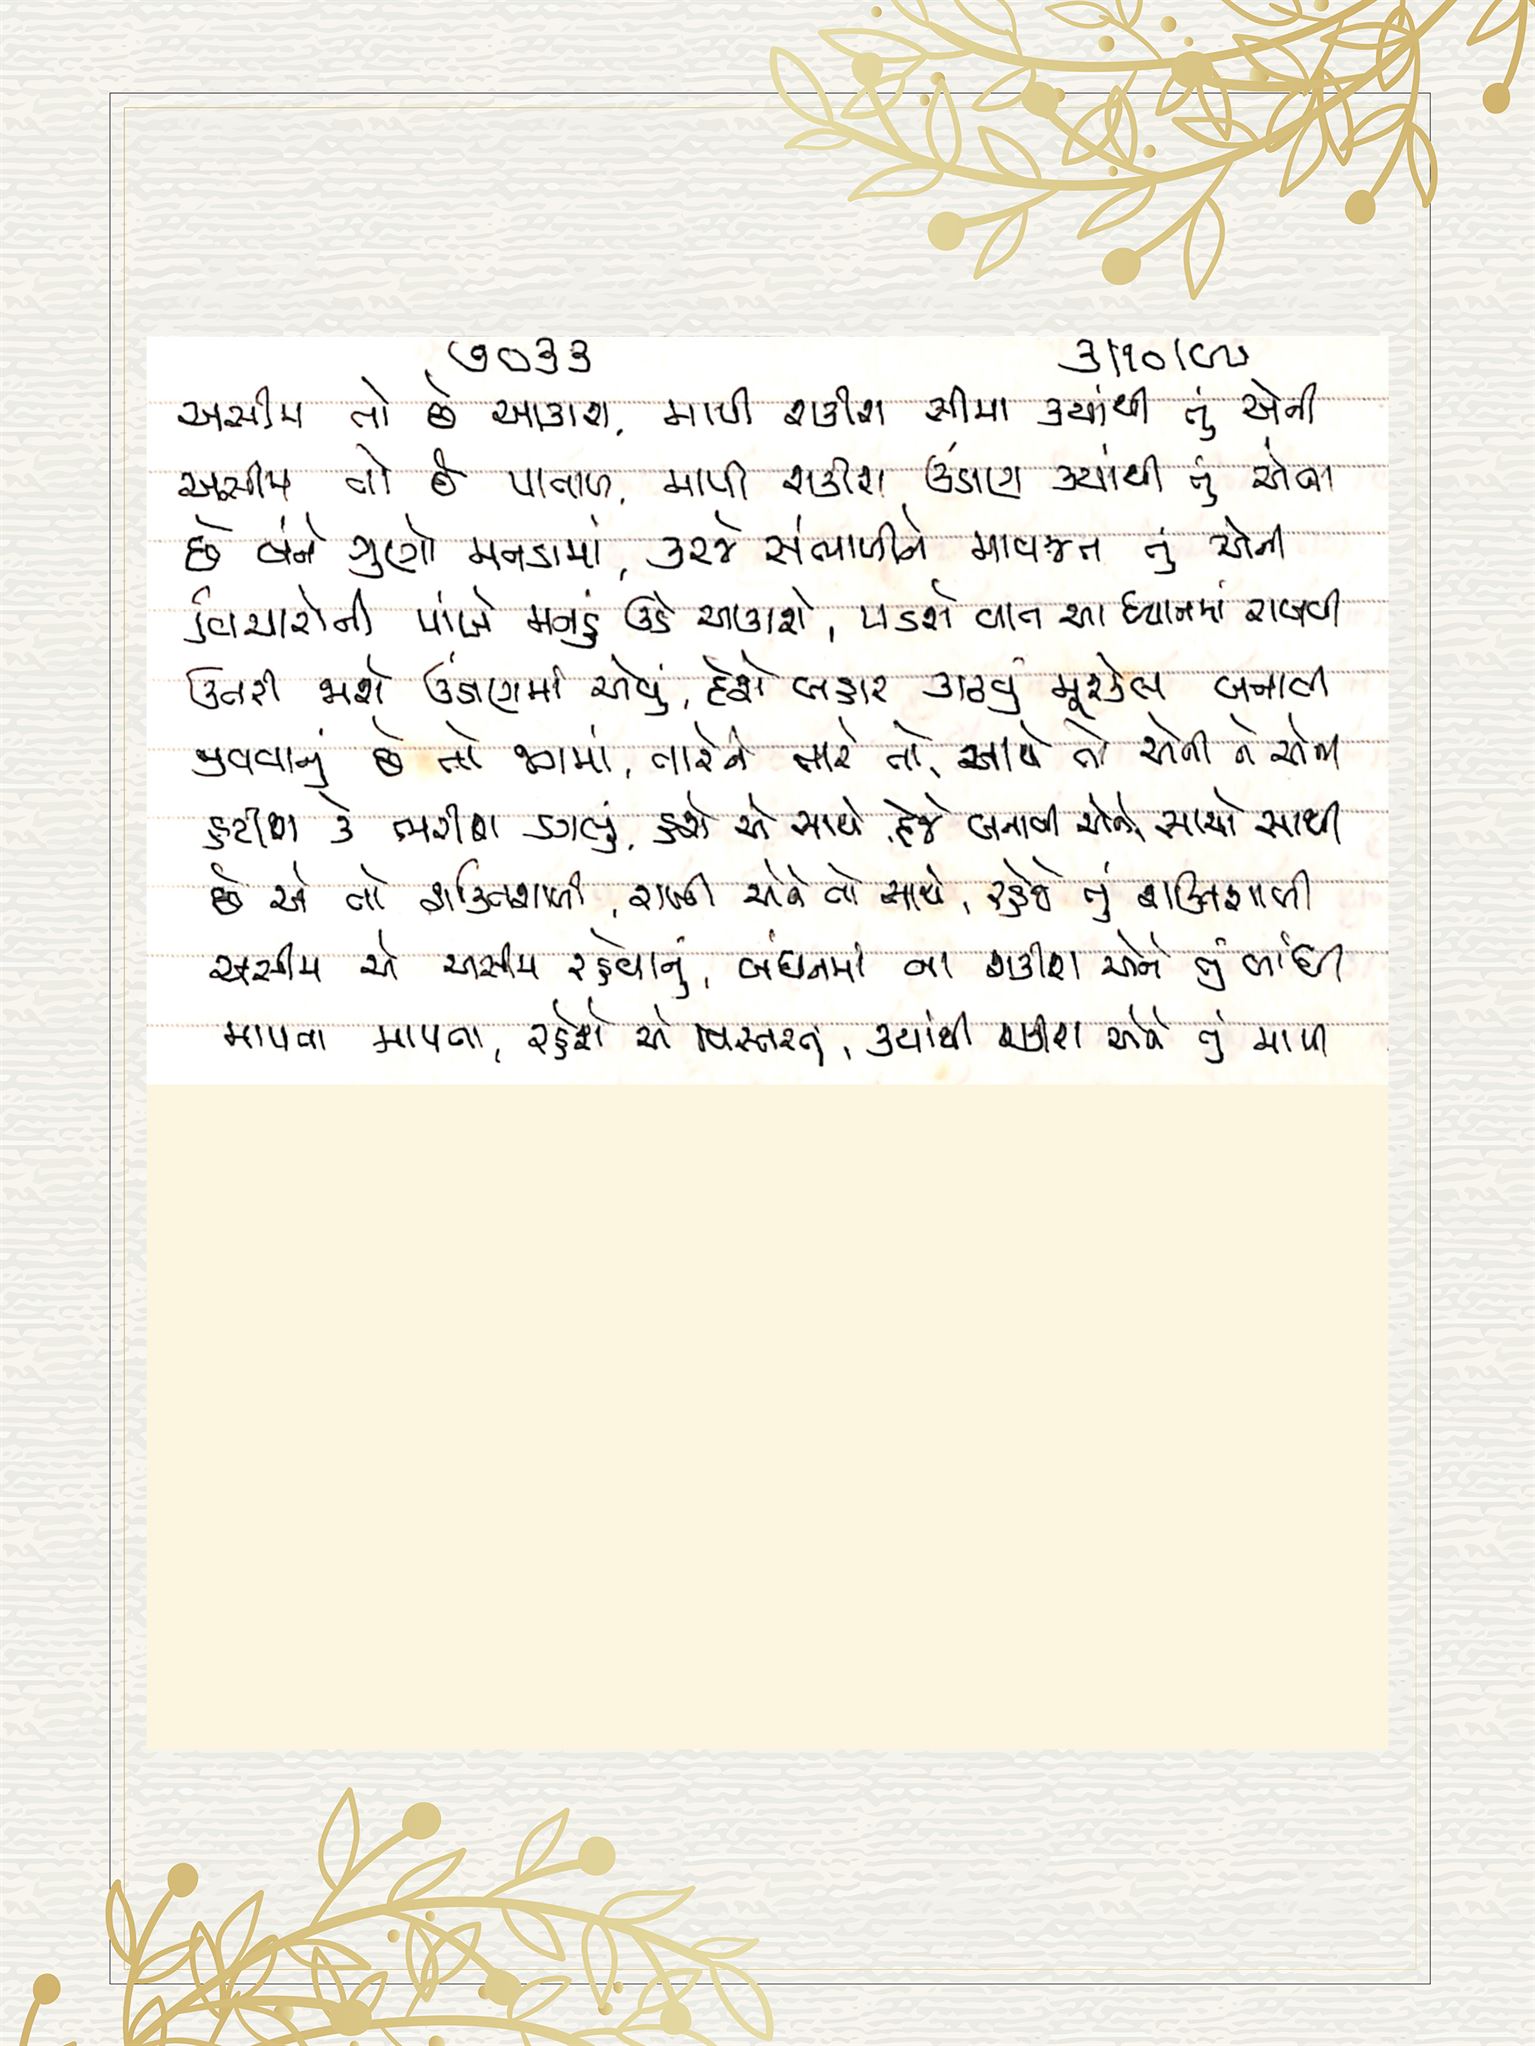 ૭૦૩૩ ૩/૧૦/૯૭
અસીમ તો છે આકાશ, માપી શકીશ સીમા ક્યાંથી તું એની
અસીમ તો છે પાતાળ, માપી શકીશ ઉંડાણ ક્યાંથી તું એના
છે બંને ગુણો મનડામાં, કરજે સંભાળીને માવજત તું એની
વિચારોની પાંખે મનડું ઉડે આકાશે, પડશે વાત આ ધ્યાનમાં રાખવી
ઉતરી જાશે ઉંડાણમાં એવું, દેશે બહાર કાઢવું મૂશ્કેલ બનાવી
જીવવાનું છે તો જગમાં, તારેને તારે તો, સાથે તો એની ને એની
હટીશ કે ભરીશ ડગલું, હશે એ સાથે, દેજે બનાવી એને સાચો સાથી
છે એ તો શક્તિશાળી, રાખી એને તો સાથે, રહેજે તું શક્તિશાળી
અસીમ એ અસીમ રહેવાનું, બંધનમાં ના શકીશ એને તું બાંધી
માપવા માપતા, રહેશે એ વિસ્તરતું, ક્યાંથી શકીશ એને તું માપી